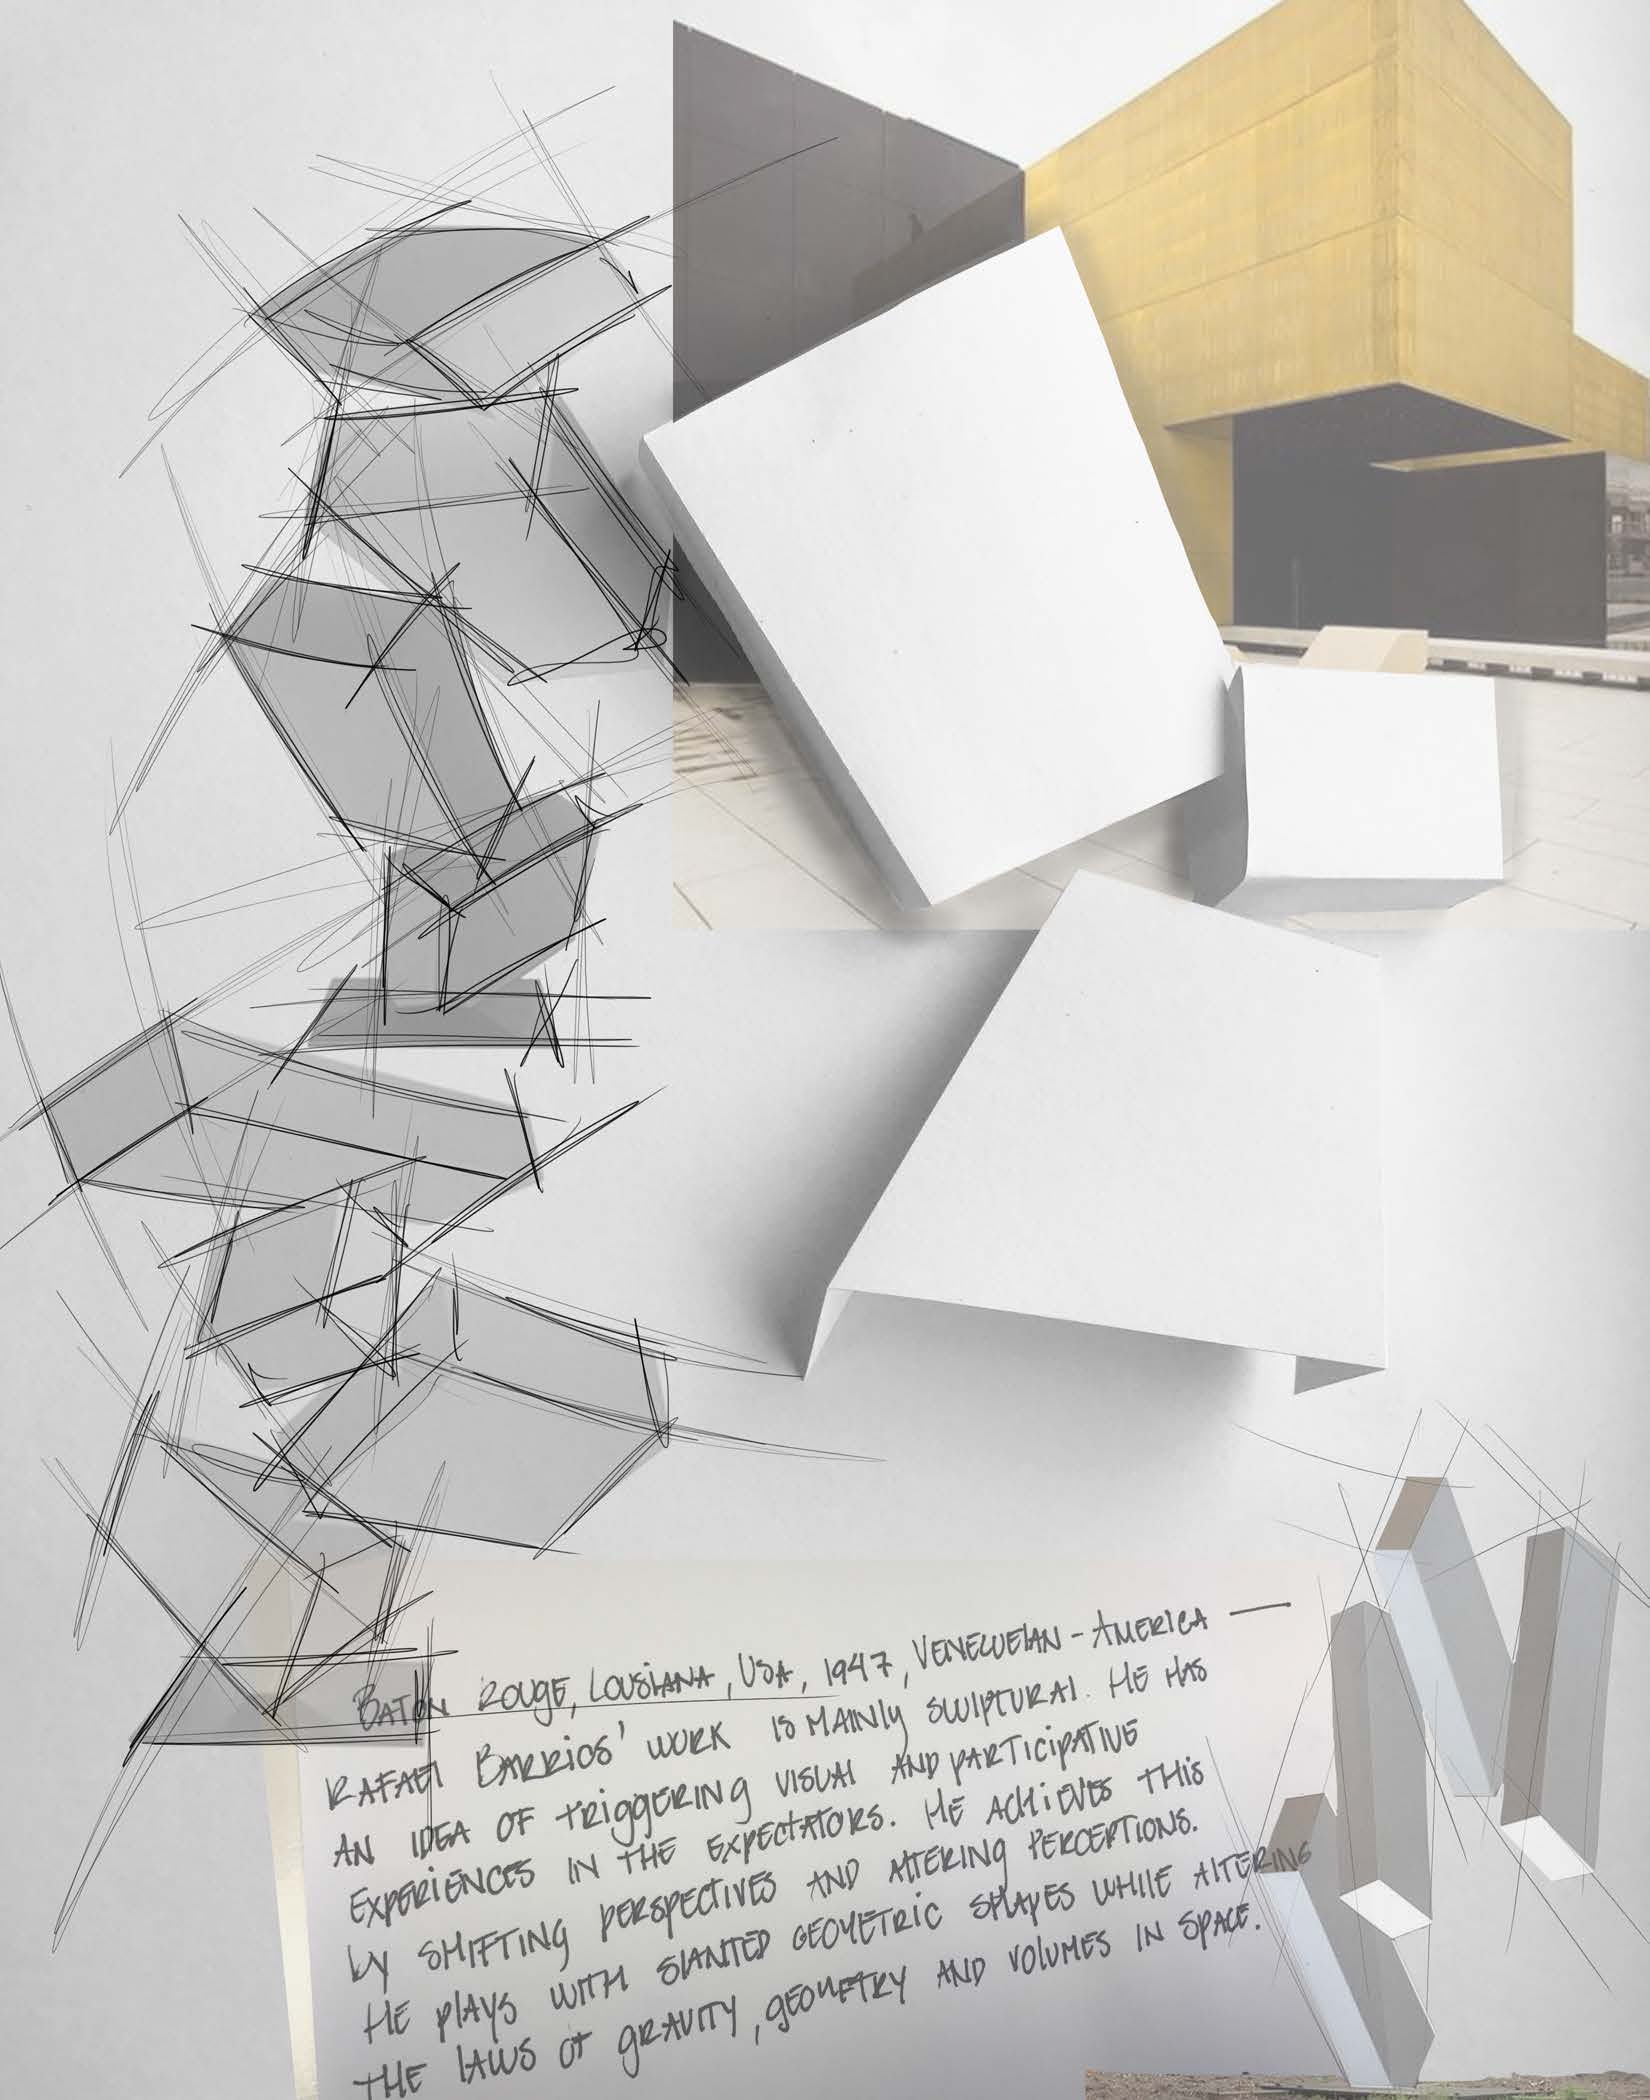 BATON ROUGE, LOUSIANA, USA, 1947, VENEZUELAN - AMERICA —
RAFAEL BARRIOS' WORK IS MAINLY SCULPTURAL. HE HAS
AN IDEA OF TRIGGERING VISUAL AND PARTICIPATIVE
EXPERIENCES IN THE EXPECTATORS. HE ACHIEVES THIS
by SHIFTING PERSPECTIVES AND ALTERING PERCEPTIONS.
HE PLAYS WITH SLANTED GEOMETRIC SHAPES WHILE ALTERING
THE LAWS OF GRAVITY, GEOMETRY AND VOLUMES IN SPACE.